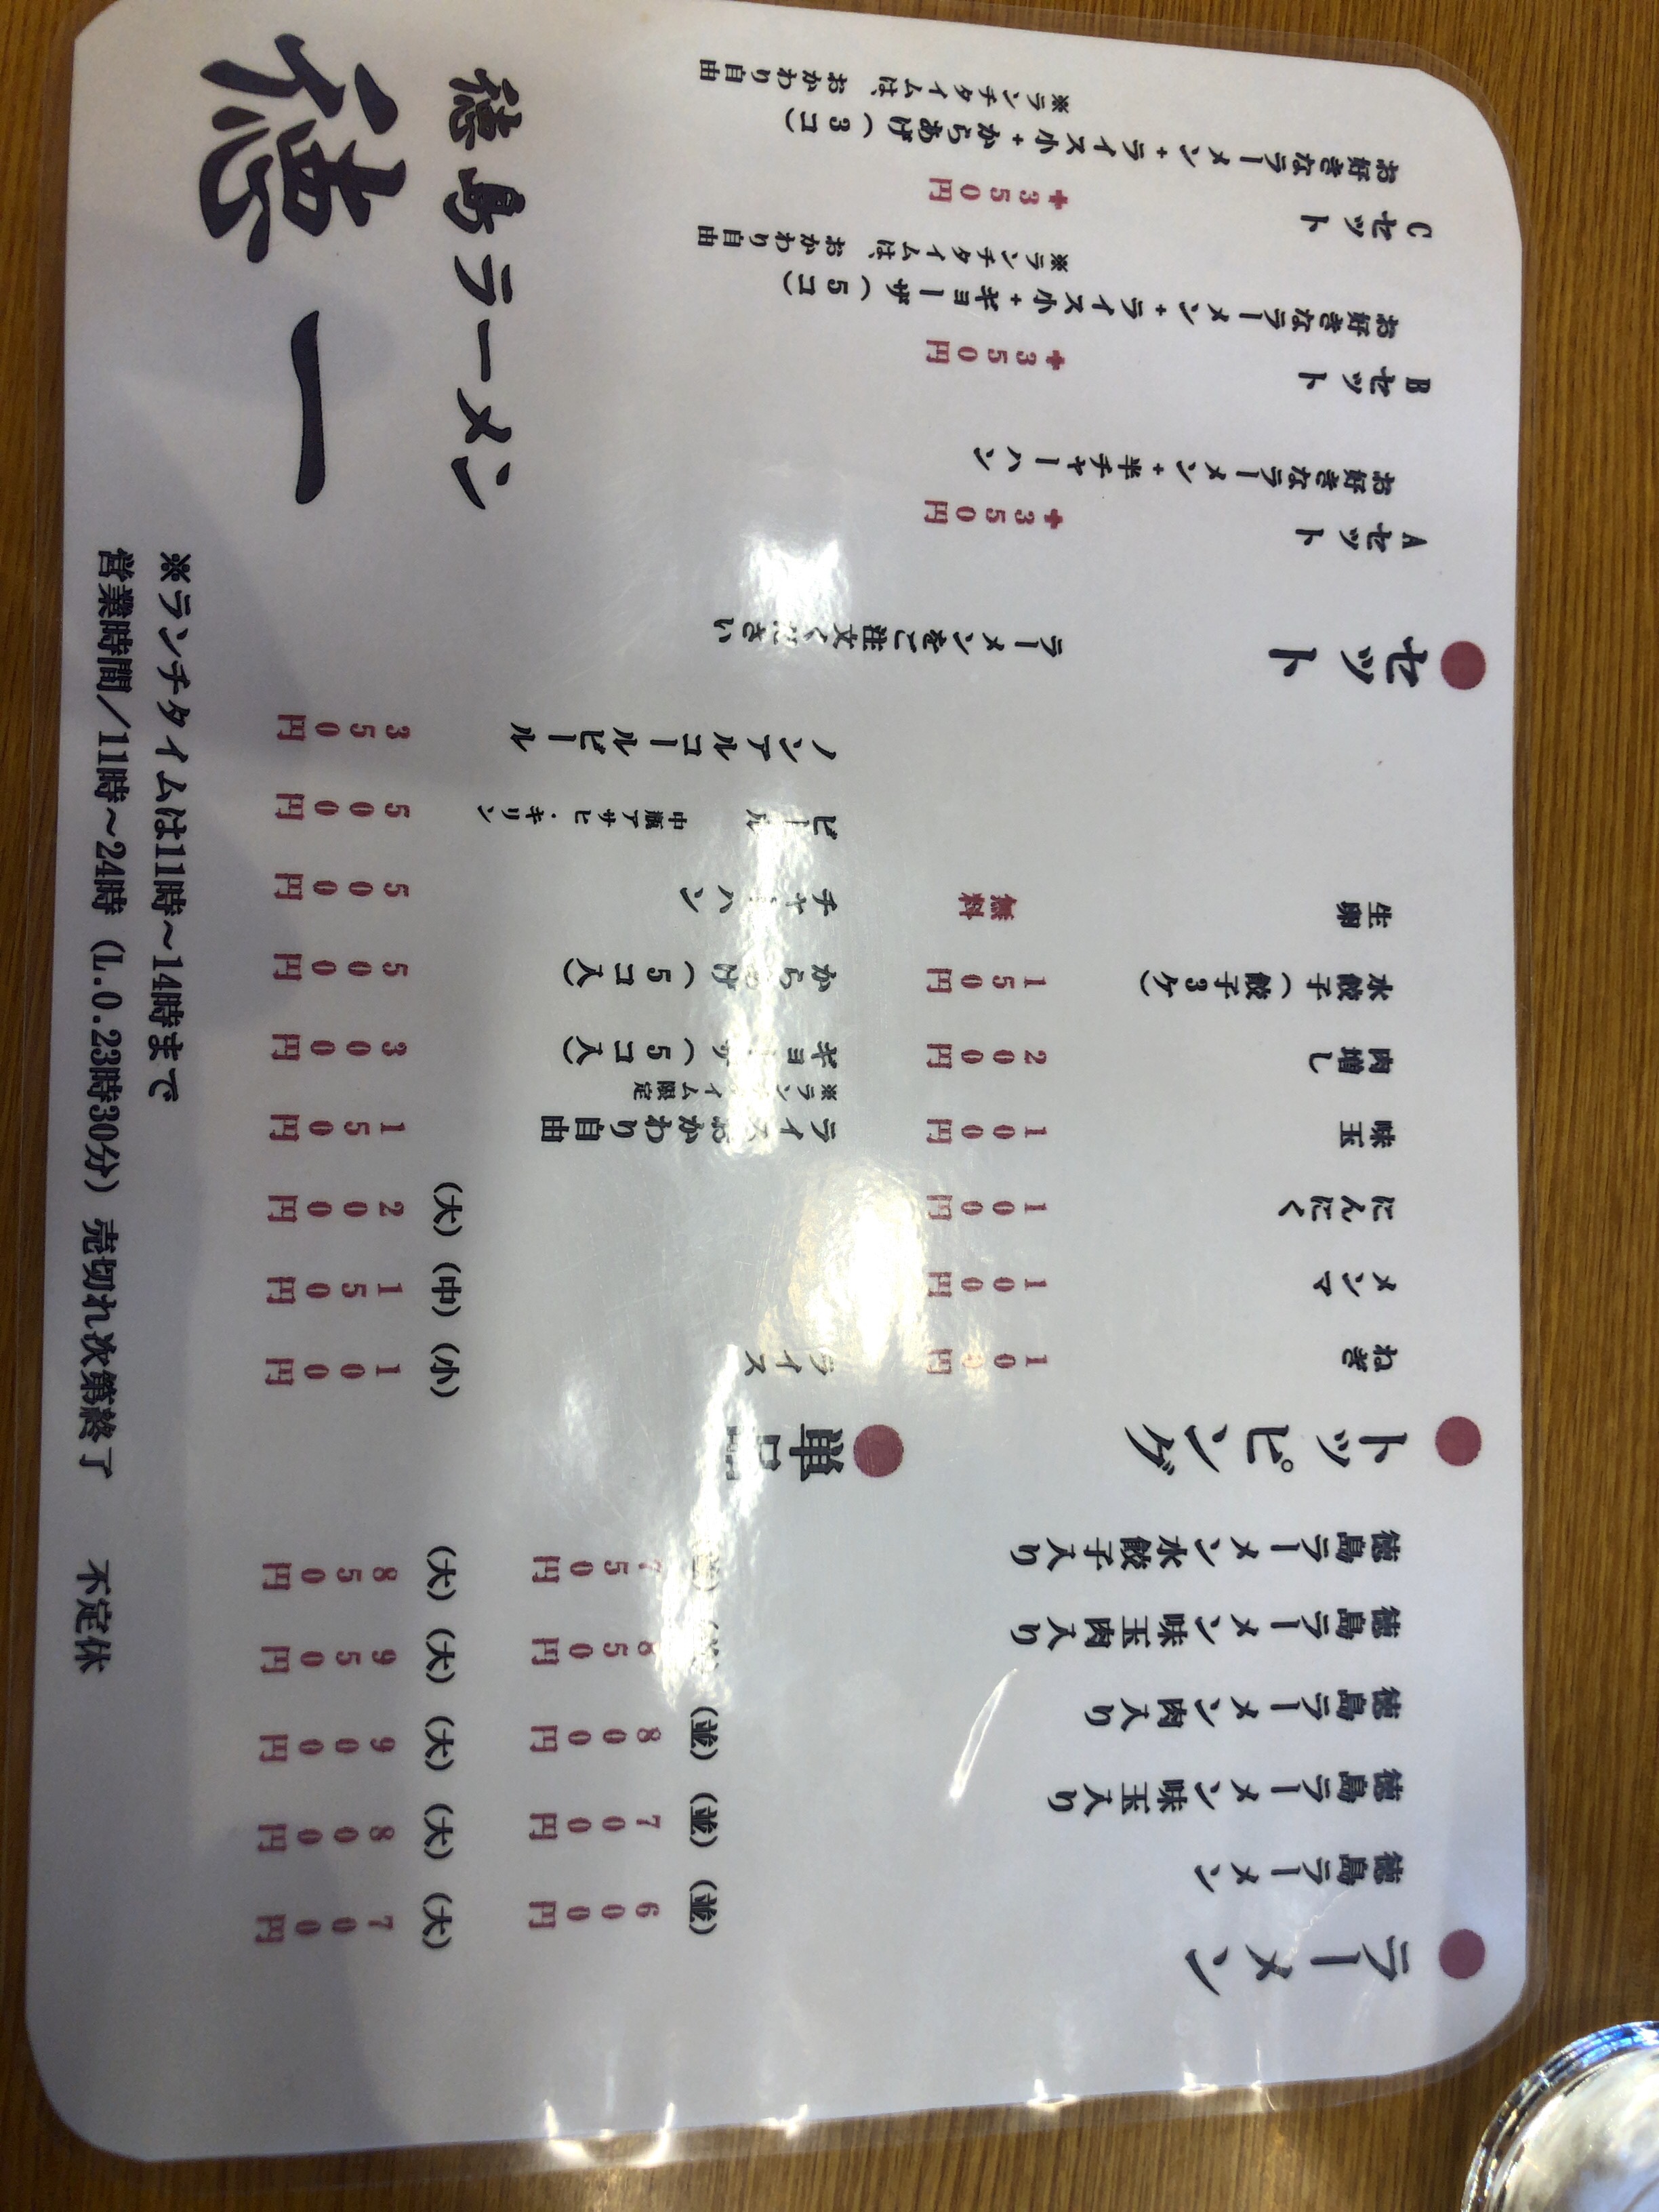 ●ラーメン
徳島ラーメン (並) 600円 (大) 700円
徳島ラーメン味玉入り (並) 700円 (大) 800円
徳島ラーメン肉入り (並) 800円 (大) 900円
徳島ラーメン味玉肉入り (並) 850円 (大) 950円
徳島ラーメン水餃子入り (並) 750円 (大) 850円
●トッピング
ねぎ 100円
メンマ 100円
にんにく 100円
味玉 100円
肉増し 200円
水餃子(餃子3ケ) 150円
生卵 無料
●単品
ライス (小) 100円
(中) 150円
(大) 200円
ライスおかわり自由 150円
※ランチタイム限定
ギョーザ(5コ入) 300円
からあげ(5コ入) 500円
チャーハン 500円
ビール 中瓶アサヒ・キリン 500円
ノンアルコールビール 350円
●セット
ラーメンをご注文ください
Aセット +350円
お好きなラーメン+半チャーハン
Bセット +350円
お好きなラーメン+ライス小+ギョーザ(5コ)
※ランチタイムは、おかわり自由
Cセット +350円
お好きなラーメン+ライス小+からあげ(3コ)
※ランチタイムは、おかわり自由
徳島ラーメン
徳一
※ランチタイムは11時~14時まで
営業時間/11時~24時 (L.O.23時30分) 売切れ次第終了 不定休